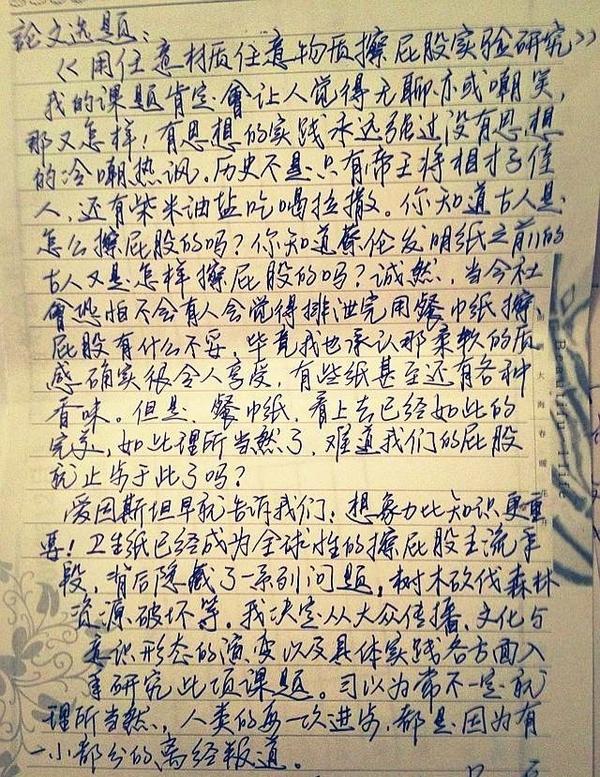 论文选题：
《用任意材质任意物质擦屁股实验研究》
我的课题肯定會让人觉得无聊亦或嘲笑，
那又怎样！有思想的实践永远强过没有思想
的冷嘲热讽。历史不是只有帝王将相才子佳
人，还有柴米油盐吃喝拉撒。你知道古人是
怎么擦屁股的吗？你知道蔡伦发明纸之前的
古人又是怎样擦屁股的吗？诚然，当今社
會恐怕不会有人会觉得排泄完用餐巾纸擦
屁股有什么不妥，毕竟我也承认那柔软的质
感确实很令人享受，有些纸甚至还有各种
香味。但是，餐巾纸，看上去已经如此的
完美，如此理所当然了，难道我们的屁股
就止步于此了吗？
爱因斯坦早就告诉我们：想象力比知识更重
要！卫生纸已经成为全球性的擦屁股主流手
段，背后隐藏了一系列问题，树木砍伐森林
资源破坏等。我决定从大众传播、文化与
意识形态的演变以及具体实践各方面入
手研究此项课题。习以为常不一定就
理所当然，人类的每一次进步，都是因为有
一小部分的离经叛道。
Beautiful life
大海春暖